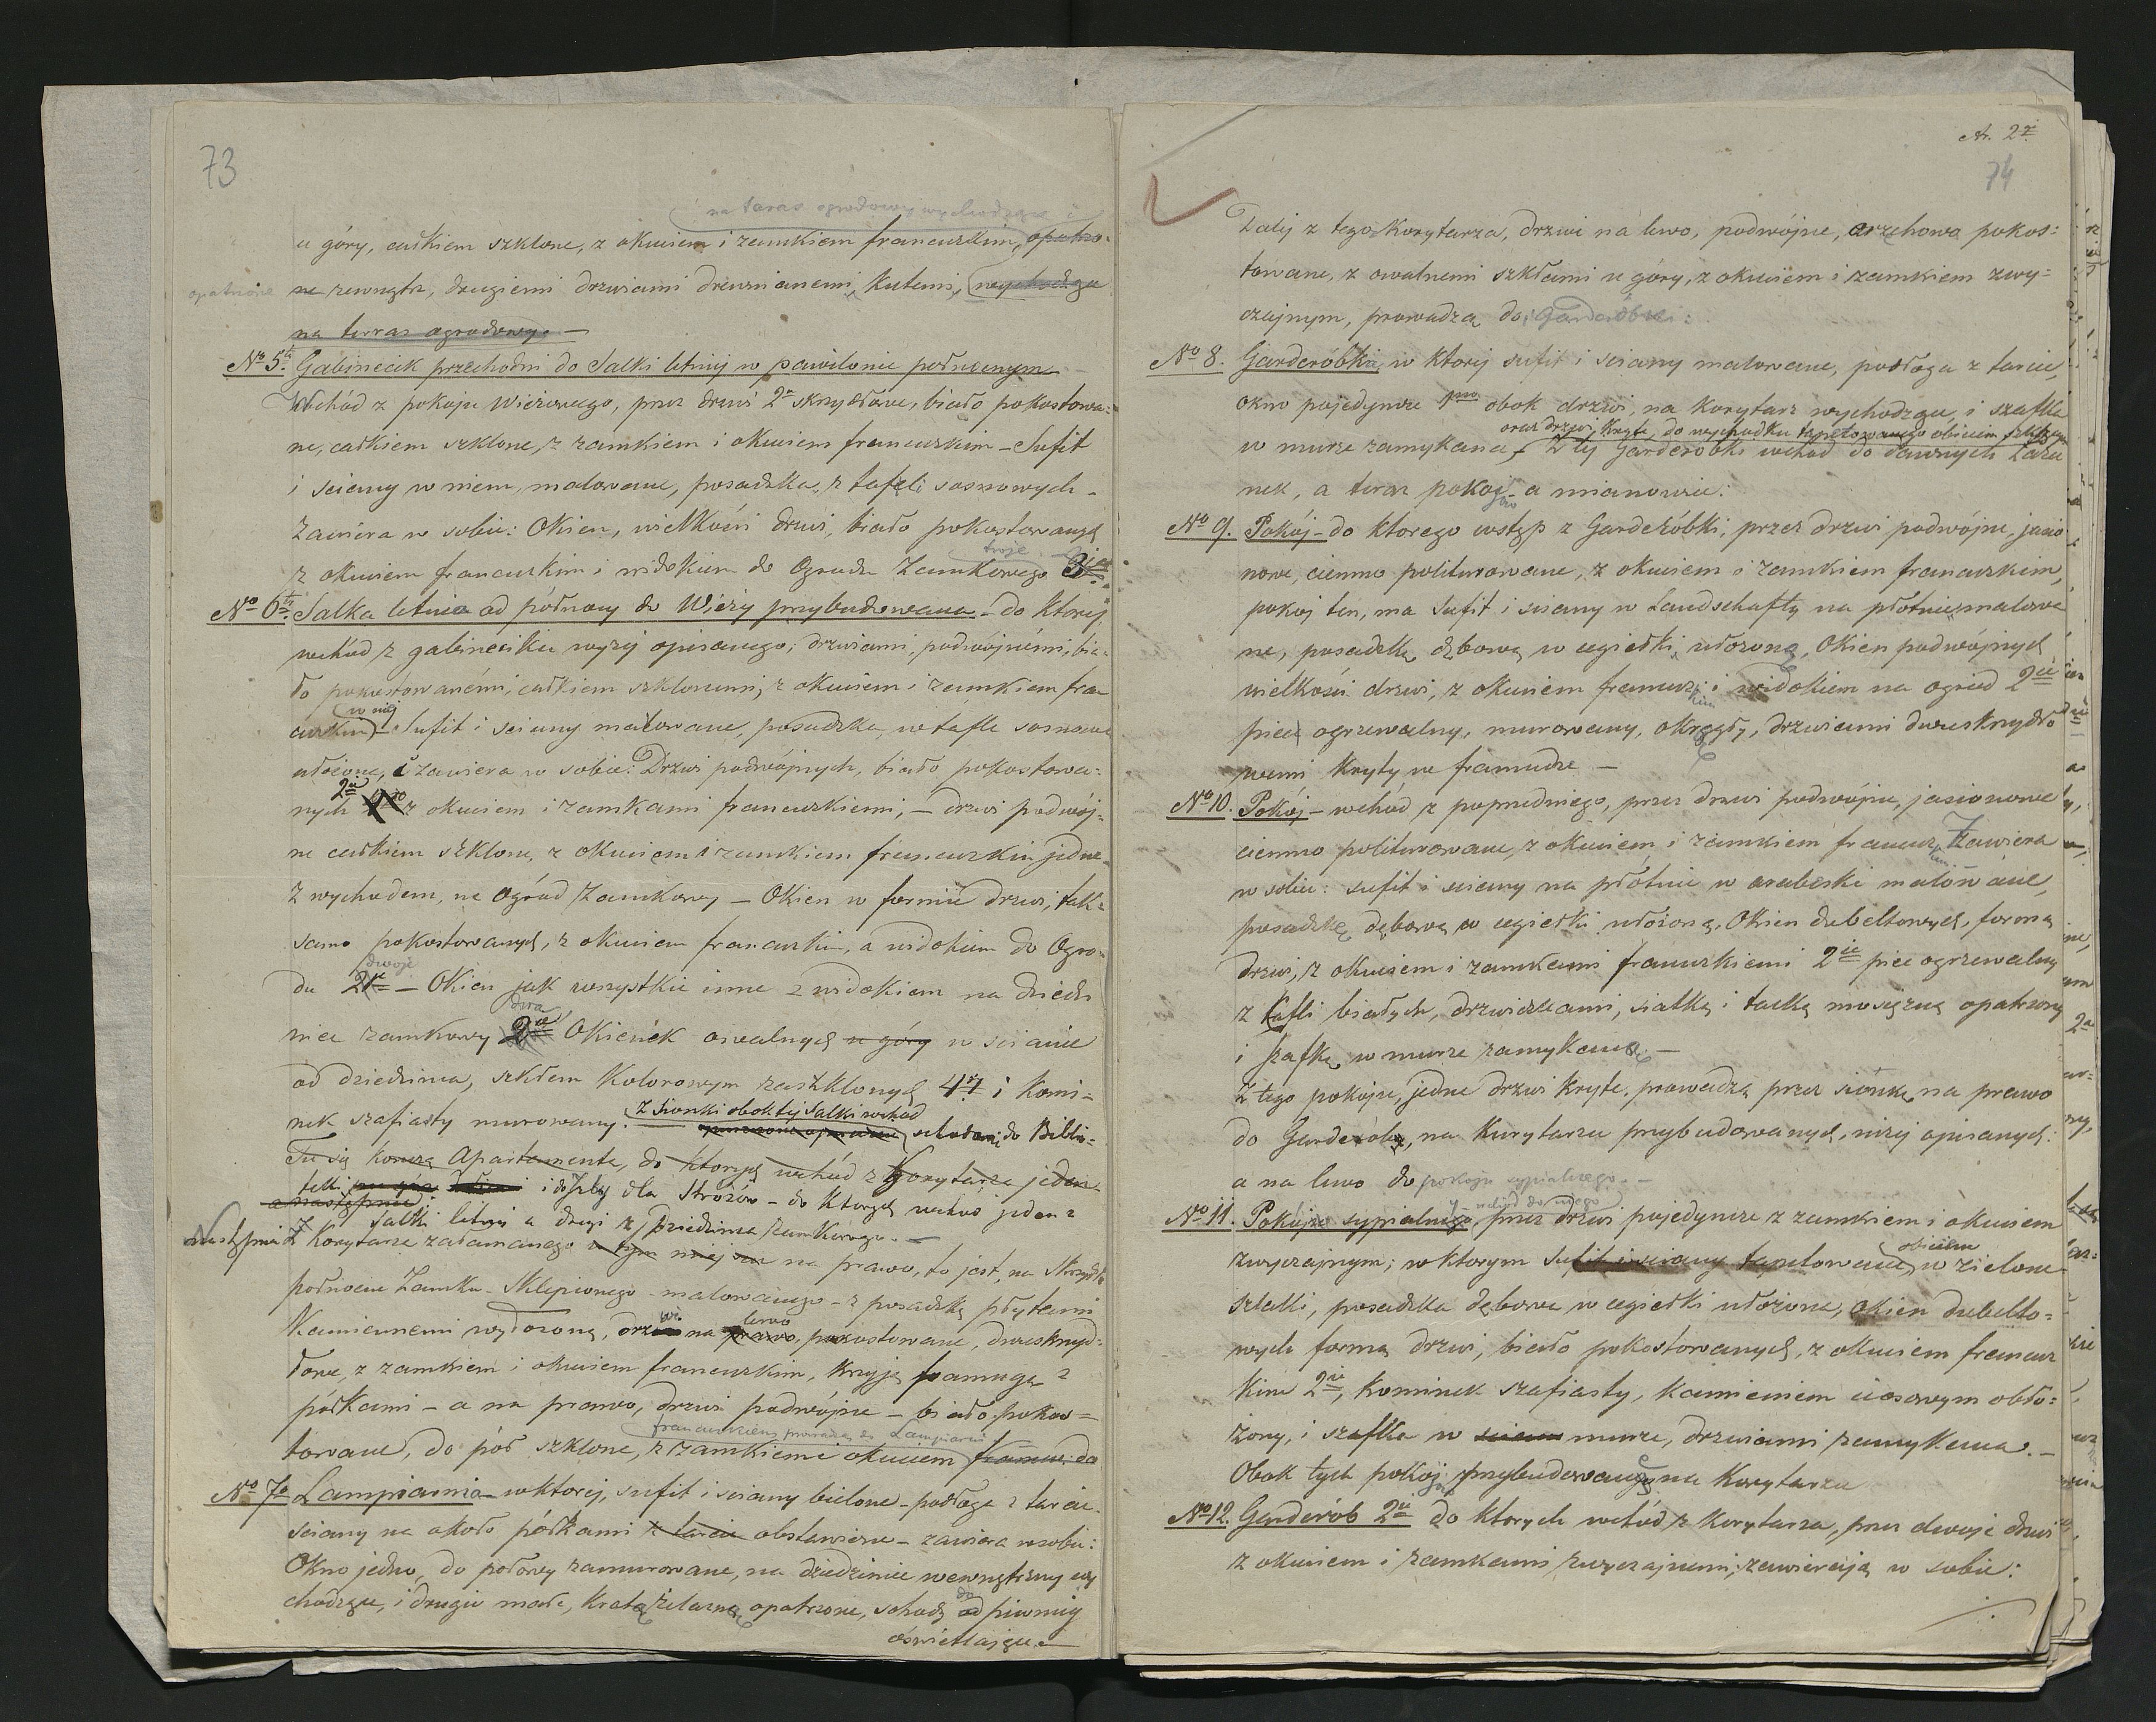 73
na taras ogrodowy wychodzące i
u góry, całkiem szklone, z okuciem i zamkiem francuskim, opatrzo-
opatrzone
ne zewnątr, drugiemi drzwiami drewnianemi, kutemi, wychodzące
na terras ogrodowy. —
No 5ty Gabinecik przechodni do Salki letniej w pawilonie północnym
Wchód z pokoju Wieżowego, przez drzwi 2a skrzydłowe, biało pokostowa-
ne, całkiem szklone, z zamkiem i okuciem francuskim — Sufit
i sciany w niem, malowane, posadzka z tafeli sosnowych -
Zawiera w sobie: Okien, wielkości drzwi, biało pokostowanych
troje
z okuciem francuskim i widokiem do Ogrodu Zamkowego 3je
No 6ty Salka letnia od północy do Wieży przybudowana — do ktorej
wchód z gabineciku wyżej opisanego, drzwiami, podwójnémi, bia-
ło pokostowanémi, całkiem szklonemi, z okuciem i zamkiem fran
w niej
cuskim — Sufit i sciany malowane, posadzka, w tafle sosnowe
ułożona, i zawiera w sobie: Drzwi podwójnych, biało pokostowa-
2ie
nych z okuciem i zamkami francuskiemi, — drzwi podwój-
ne całkiem szklone, z okuciem i zamkiem francuskim jedne
z wychodem, na Ogród Zamkowy — Okien w formie drzwi, tak-
samo pokostowanych, z okuciem francuskim, a widokiem do Ogro-
dwoje
du 2ie — Okien jak wszystkie inne z widokiem na dziedzi
dwa
niec zamkowy 2ie Okienek owalnych u góry w scianie
od dziedzińca, szkłem Kolorowym zaszklonych 4ry i Komi-
z sionki obok tej Salki wchód
nek szafiasty murowany. schodami do Biblio-
Tu się kończą Apartamenta, do ktorych wchód z Korytarza jeden
teki i do Izby dla Stróżów — do Ktorych wchód jeden z
a następnie
Salki letniej a drugi z Dziedzińca Zamkowego. —
Następnie z Korytarza załamanego w tym miejscu na prawo, to jest, na Skrzydło
północne Zamku — Sklepionego — malowanego — z posadzką płytami
wi lewo
Kamiennemi wyłożoną, drzwi na prawo, pokostowane, dwuskrzyd-
łowe, z zamkiem i okuciem francuskim, kryją framugę z
półkami — a na prawo, drzwi podwójne — biało pokos-
francuskiem prowadzą do Lampiarni
towane, do pół szklone, z zamkiem i okuciem francus: do
No 7o Lampiarnia — w ktorej, sufit i sciany bielone — podłoga z tarcic
sciany na około półkami z tarcic obstawione — zawiera w sobie:
Okno jedno, do połowy zamurowane, na dziedziniec wewnętrzny wy
do
chodzące, i drugie małe, Kratą żelazną opatrzone, schody od piwnicy
oświetlające. —
74
Dalej z tego Korytarza, drzwi na lewo, podwójne, orzechowo pokos-
towane, z owalnemi szkłami u góry, z okuciem i zamkiem zwy-
czajnym, prowadzą do Garderóbki:
No 8. Garderóbka, w ktorej sufit i sciany malowane, podłoga z tarcic,
okno pojedyncze 1no obok drzwi, na Korytarz wychodzące, i szafka
oraz drzwi, Kryte, do wychodku tapetowanego obiciem
w murze zamykana, — Z tej Garderóbki wchód do dawnych Łazie
nek, a teraz pokoj — a mianowicie:
No 9. Pokój — do ktorego wstęp z Garderóbki, przez drzwi podwójne, jasio
nowe, ciemno politurowane, z okuciem i zamkiem francuskim,
pokoj ten, ma Sufit i sciany w Landschafty na płotnie malowa
ne, posadzkę dębową w cegiełki ułożoną, Okien podwójnych
wielkości drzwi, z okuciem francuskim i widokiem na ogród 2ie
piec ogrzewalny, murowany, okrągły, drzwiami dwuskrzydło
wemi Kryty we framudze —
No 10. Pokój — wchód z poprzedniego, przez drzwi podwójne, jasionowe
ciemno politurowane, z okuciem i zamkiem francuz: Zawiera
w sobie: sufit i sciany na płótnie w arabeski malowane,
posadzkę dębową w cegiełki ułożoną, Okien dubeltowych, formą
drzwi, z okuciem i zamkami francuskiemi 2ie piec ogrzewalny
z kafli białych, drzwiczkami, siatką i tacką mosiężną opatrzony
i szafkę w murze zamykaną. —
Z tego pokoju, jedne drzwi Kryte, prowadzą przez sionkę, na prawo
do Garderób, na Kurytarzu przybudowanych, niżej opisanych:
a na lewo do pokoju sypialnego. —
wchód do niego
No 11. Pokoju sypialnego, przez drzwi pojedyncze z zamkiem i okuciem
obiciem
zwyczajnym; w ktorym Sufit i sciany tapetowane, w zielone
sztalki, posadzka dębowa w cegiełki ułożona, okien dubelto-
wych formą drzwi, biało pokostowanych, z okuciem francuz
kim 2ie, Kominek szafiasty, Kamieniem ciosowym obło-
żony, i szafka w murze, drzwiami zamykana. —
Obok tych pokoj przybudowane na Korytarzu
No 12. Garderób 2ie do ktorych wchód z Kurytarza, przez dwoje drzwi
z okuciem i zamkami zwyczajnemi, zawierają w sobie: